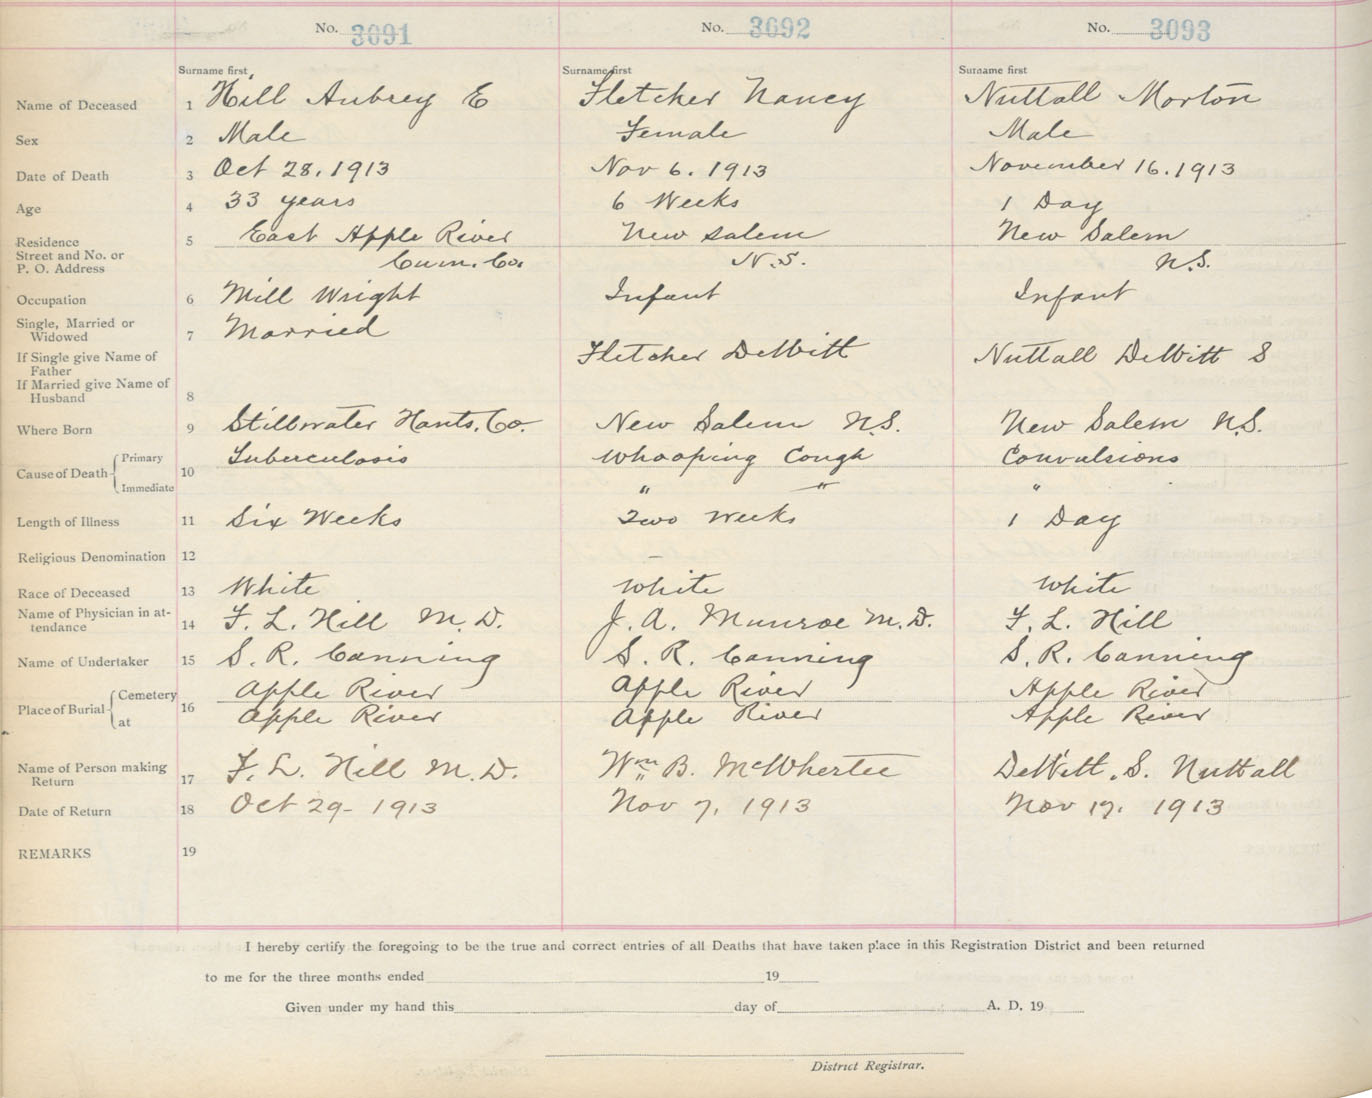 No. 3091 No. 3092 No. 3093
Surname first Surname first Surname first
Name of Deceased 1 Hill Aubrey E Fletcher Nancy Nuttall Morton
Sex 2 Male Female Male
Date of Death 3 Oct 28, 1913 Nov 6. 1913 November 16. 1913
Age 4 33 years 6 Weeks 1 Day
Residence
Street and No. or
P. O. Address 5 East Apple River New Salem New Salem
Cum. Co. N.S. N.S.
Occupation 6 Mill Wright Infant Infant
Single, Married or
Widowed 7 Married
If Single give Name of
Father Fletcher DeWitt Nuttall DeWitt S
If Married give Name of
Husband 8
Where Born 9 Stillwater Hants. Co. New Salem N.S. New Salem N.S.
Cause of Death Primary 10 Tuberculosis Whooping Cough Convulsions
Immediate " " "
Length of Illness 11 Six Weeks Two Weeks 1 Day
Religious Denomination 12 —
Race of Deceased 13 White White White
Name of Physician in at-
tendance 14 F. L. Hill M.D. J. A. Munroe M.D. F. L. Hill
Name of Undertaker 15 S. R. Canning S. R. Canning S. R. Canning
Place of Burial Cemetery 16 Apple River Apple River Apple River
at Apple River Apple River Apple River
Name of Person making
Return 17 F. L. Hill M.D. Wm B. McWhertee DeWitt. S. Nuttall
Date of Return 18 Oct 29- 1913 Nov 7, 1913 Nov 17. 1913
REMARKS 19
I hereby certify the foregoing to be the true and correct entries of all Deaths that have taken place in this Registration District and been returned
to me for the three months ended 19
Given under my hand this day of A. D. 19
District Registrar.